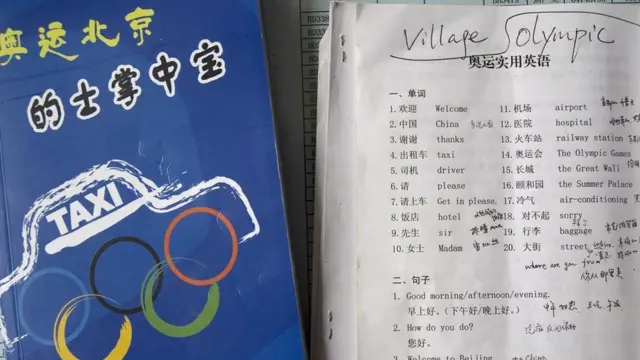 奥运北京
的士掌中宝
TAXI
Village Solympic
奥运实用英语
一、单词
1.欢迎 Welcome
2.中国 China
3.谢谢 thanks
4.出租车 taxi
5.司机 driver
6.请 please
7.请上车 Get in please.
8.饭店 hotel
9.先生 sir
10.女士 Madam
11.机场 airport
12.医院 hospital
13.火车站 railway station
14.奥运会 The Olympic Games
15.长城 the Great Wall
16.颐和园 the Summer Palace
17.冷气 air-conditioning
18.对不起 sorry
19.行李 baggage
20.大街 street
where are you from
你从那里来
二、句子
1. Good morning/afternoon/evening.
早上好。(下午好/晚上好。)
2. How do you do?
您好。
3. Welcome to Beijing